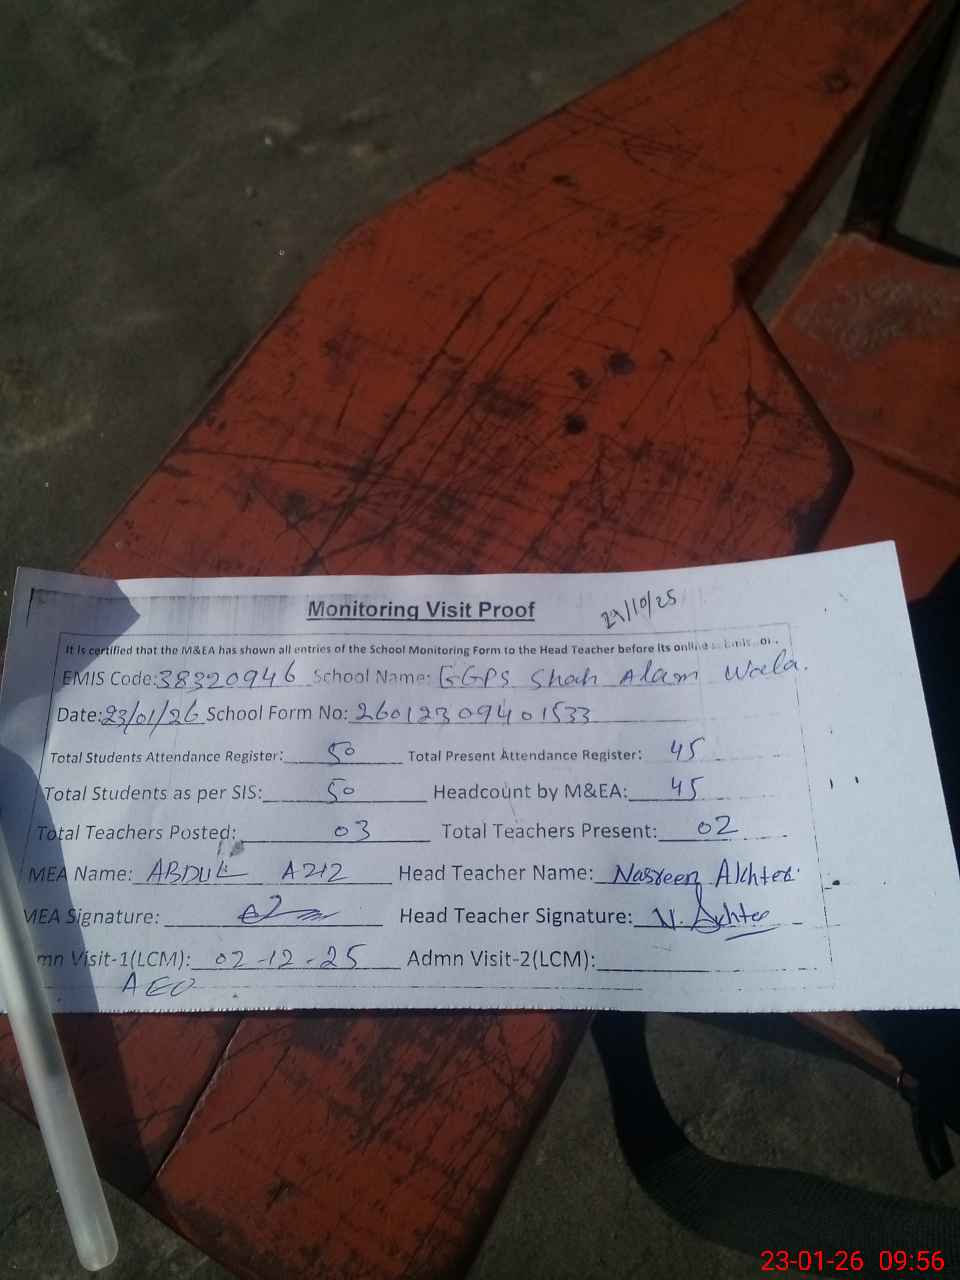 Monitoring Visit Proof
29/10/25
It is certified that the M&EA has shown all entries of the School Monitoring Form to the Head Teacher before its online
EMIS Code: 38320946 School Name: GGPS Shah Alam Wala.
Date: 23/01/26 School Form No: 26012309401533
Total Students Attendance Register: 50 Total Present Attendance Register: 45
Total Students as per SIS: 50 Headcount by M&EA: 45
Total Teachers Posted: 03 Total Teachers Present: 02
MEA Name: ABDUL AZIZ Head Teacher Name: Nasreen Akhter
MEA Signature: Head Teacher Signature: N. Akhter
mn Visit-1(LCM): 02-12-25 Admn Visit-2(LCM):
AEO
23-01-26 09:56